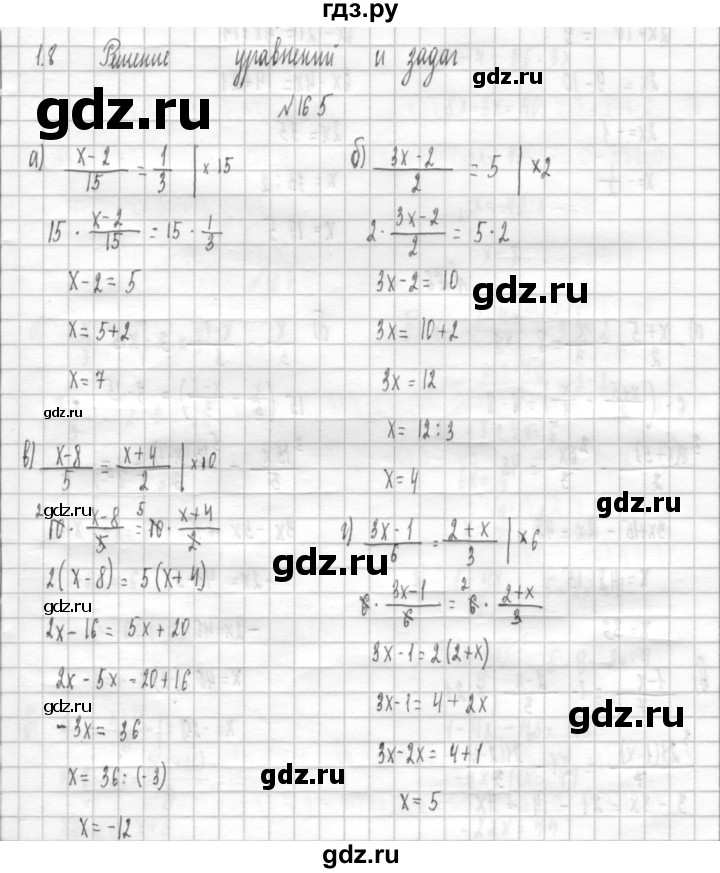 гдз.ру
1.8 Решение уравнений и задач
gdz.ru
gdz.ru
№165
а) (x-2)/15 = 1/3 | ×15
15 · (x-2)/15 = 15 · 1/3
x-2 = 5
x = 5+2
x = 7
б) (3x-2)/2 = 5 | ×2
2 · (3x-2)/2 = 5·2
3x-2 = 10
gdz.ru
3x = 10+2
3x = 12
x = 12:3
x = 4
gdz.ru
gdz.ru
в) (x-8)/5 = (x+4)/2 | ×10
gdz.ru
gdz.ru
2 10 · (x-8)/5 = 5 10 · (x+4)/2
gdz.ru
2(x-8) = 5(x+4)
gdz.ru
2x-16 = 5x+20
2x-5x = 20+16
gdz.ru
-3x = 36
x = 36:(-3)
x = -12
г) (3x-1)/6 = (2+x)/3 | ×6
gdz.ru
6 · (3x-1)/6 = 2 6 · (2+x)/3
3x-1 = 2(2+x)
3x-1 = 4+2x
gdz.ru
3x-2x = 4+1
gdz.ru
x = 5
gdz.ru